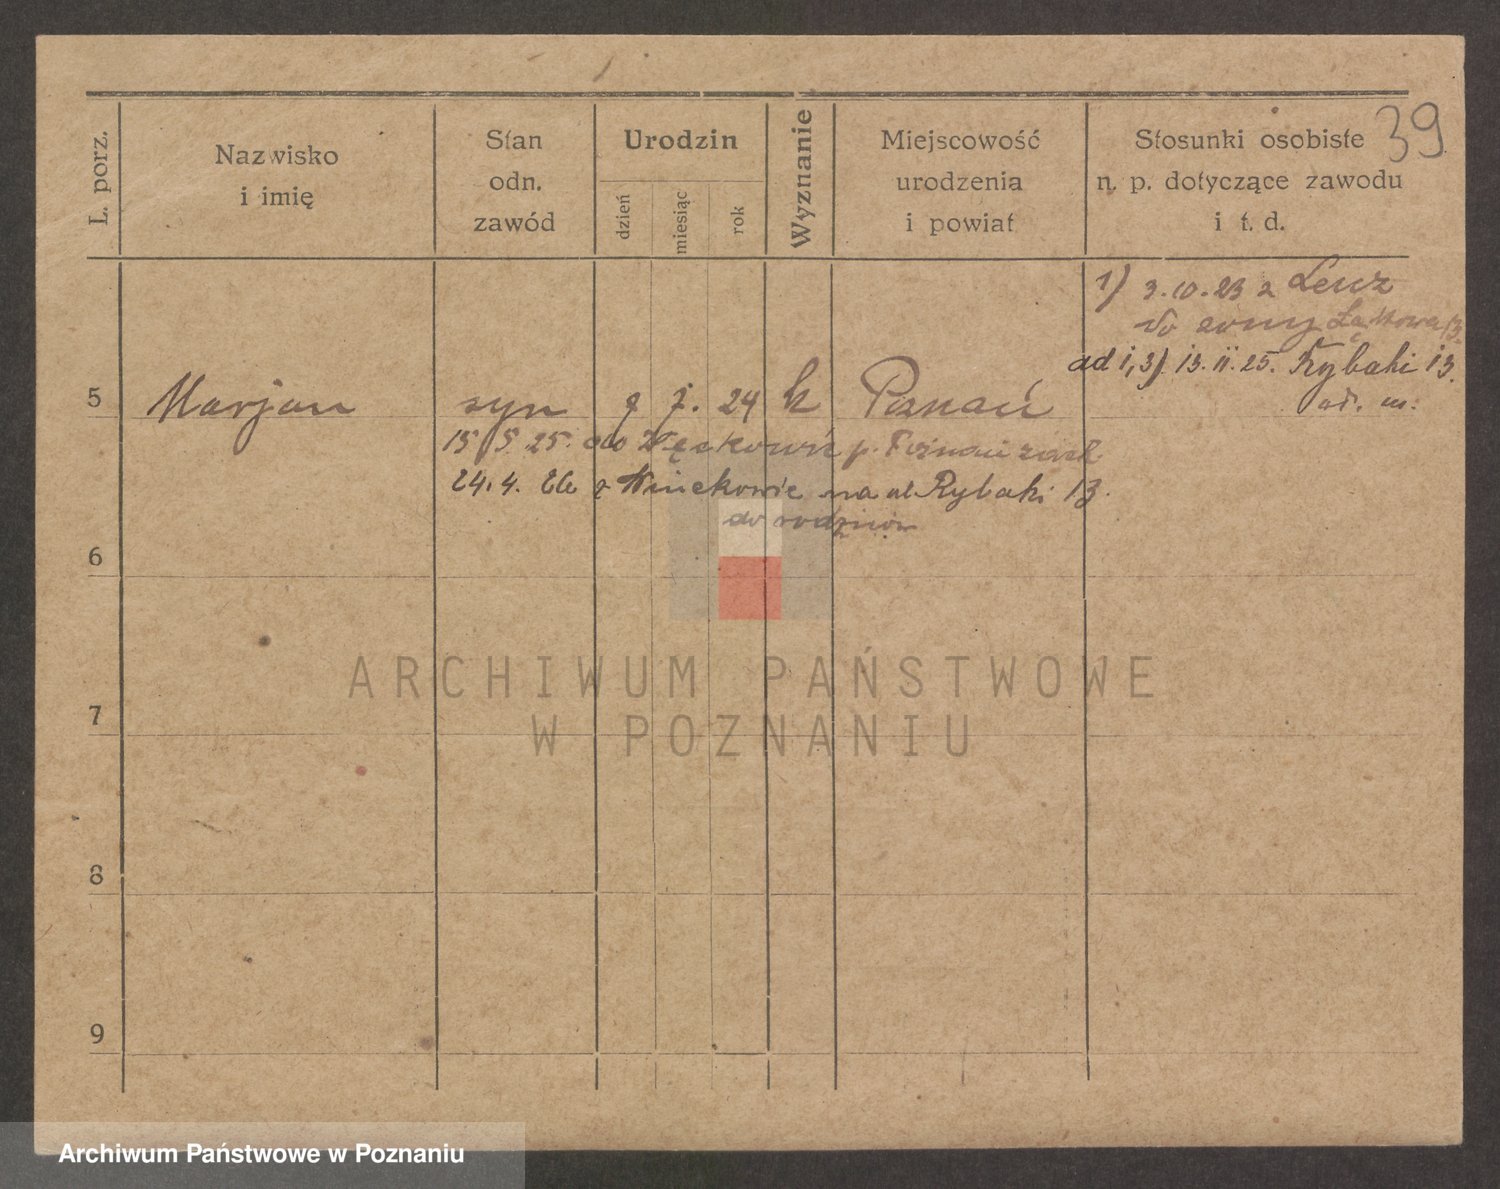 39
L. porz.
Nazwisko
i imię
Stan
odn.
zawód
Urodzin
dzień
miesiąc
rok
Wyznanie
Miejscowość
urodzenia
i powiat
Stosunki osobiste
n. p. dotyczące zawodu
i t. d.
1) 3.10.23 z
do żony Łąkowa 13.
ad 1,3) 13.11.25. Rybaki 13.
5 Marjan syn 24 k Poznań
15/5 25. do p. Poznań
24.4. 26 z na ul Rybaki 13.
do rodziców
6
7
8
9
ARCHIWUM PAŃSTWOWE
W POZNANIU
Archiwum Państwowe w Poznaniu